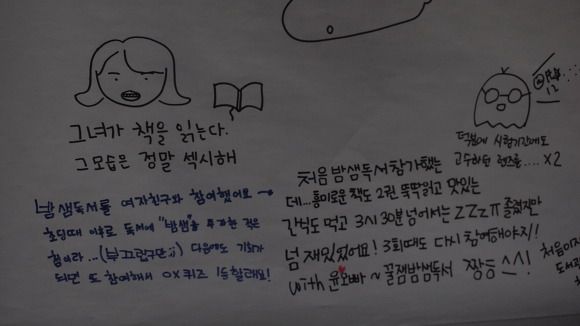 그녀가 책을 읽는다.
그 모습은 정말 섹시해
밤샘독서를 여자친구와 참여했어요→
초딩때 이후로 독서에 "밤샘"을 투자한 적은
첨이라...(부끄럽구만;;) 다음에도 기회가
되면 또 참여해서 OX퀴즈 1등할래요!
덕분에 시험기간에도
고등하던 렌즈를.... X2
처음 밤샘독서참가했는
데...흥미로운 책도 2권 뚝딱읽고 맛있는
간식도 먹고 3시30분 넘어서는 ZZZㅠ 졸렸지만
넘 재있었어요! 3회때도 다시 참여해야지!
with 윤오빠~ 꿀잼밤샘독서 짱등^^!
처음이자